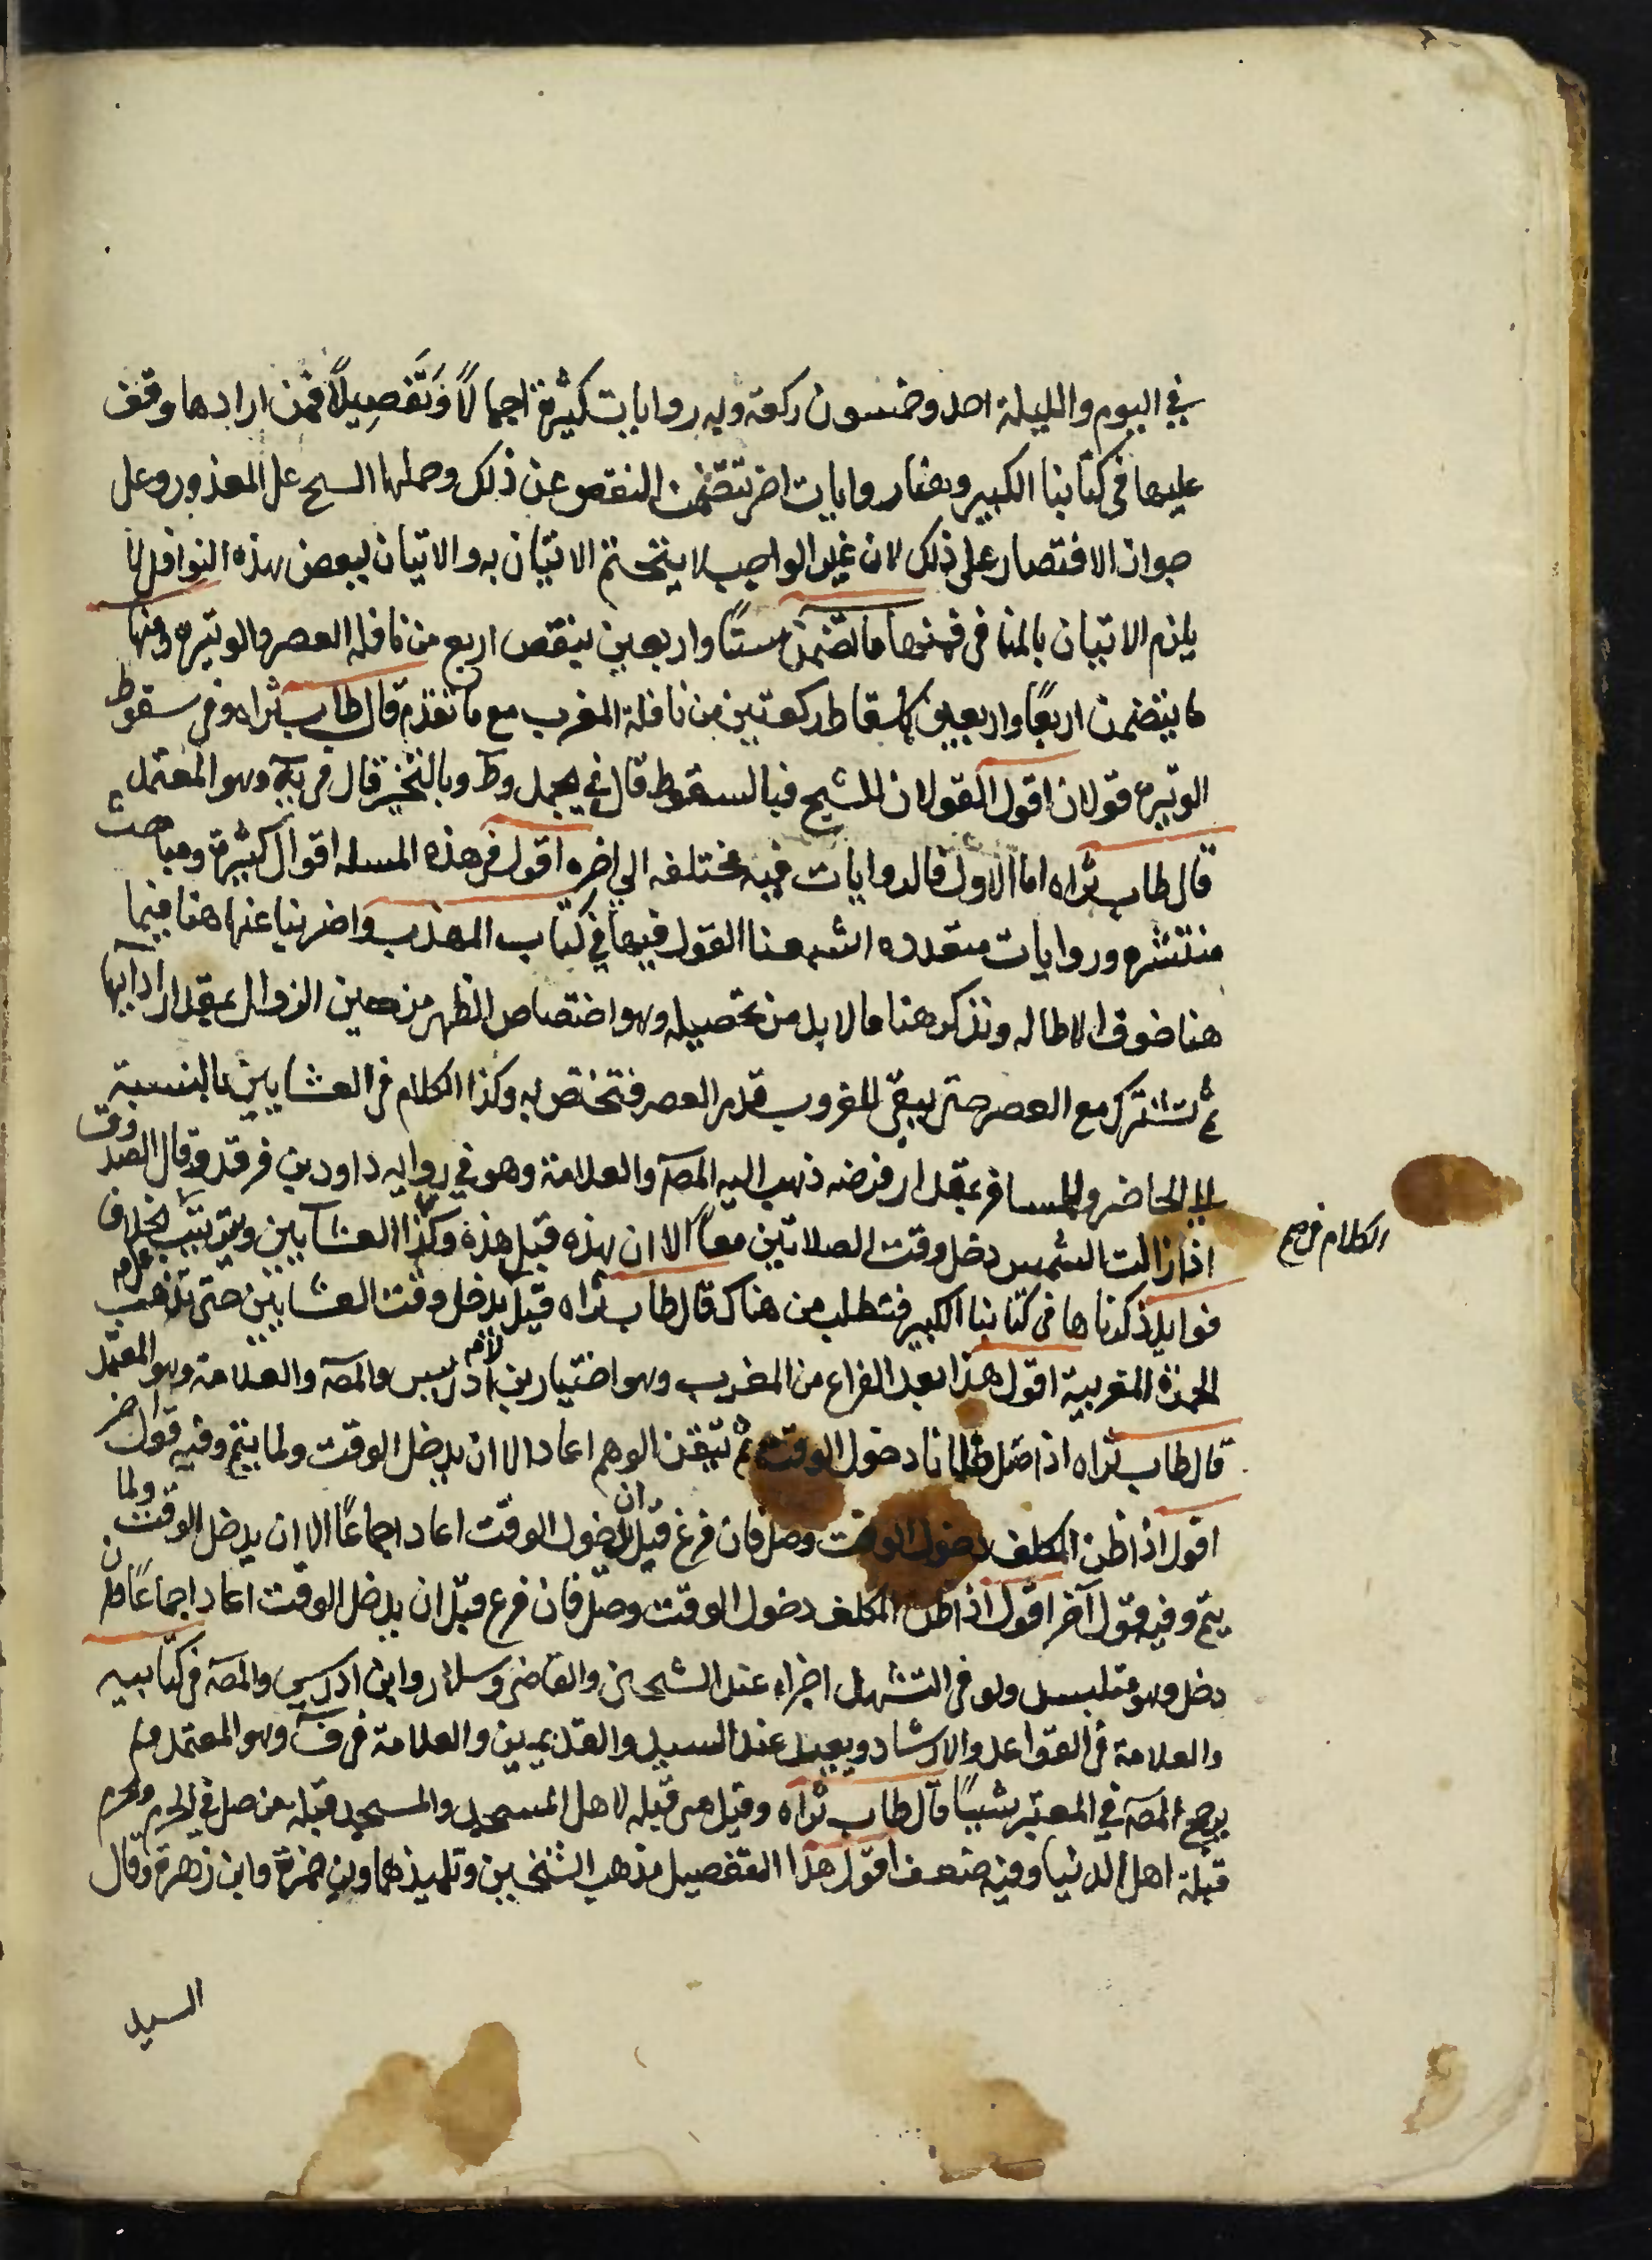 في اليوم والليلة احد وخمسون ركعة وبه روايات كثيرة اجمالاً وَتَفصِيلاً فمن ارادها وقف
عليها في كتابنا الكبير وهنا روايات اخر تتضمن النقص عن ذلك وحملها الشيخ على المعذور وعلى
جواز الاقتصار على ذلك لان غير الواجب لا يتحتم الاتيان به والاتيان ببعض هذه النوافل لا
يلزم الاتيان بالمنافي فمنها ما تضمن ستاً واربعين بنقص اربع من نافلة العصر والوتيرة ومنها
ما يتضمن اربعاً واربعين باسقاط ركعتين من نافلة المغرب مع ما تقدم قال طاب ثراه وفي سقوط
الوتيرة قولان اقول القولان للشيخ فبالسقوط قال في يجمل وط وبالتخيير قال في يه وهو المعتمد
قال طاب ثراه اما الاول فالروايات فيه مختلفه الى اخره اقول في هذه المسله اقوال كثيرة ومباحث
منتشره وروايات متعدده اشبعنا القول فيها في كتاب المهذب واضربنا عنها هنا فيما
هنا خوف الاطاله ونذكر هنا ما لا بد من تحصيله وهو اختصاص الظهر من حين الزوال بمقدار ادايها
ثم تشترك مع العصر حتى يبقى للغروب قدر العصر فتختص به وكذا الكلام في العشايين بالنسبة
الى الحاضر والمسافر بمقدار فرضه ذهب اليه المصه والعلامة وهو في روايه داود بن فرقد وقال الصدوق
اذا زالت الشمس دخل وقت الصلاتين معاً الا ان هذه قبل هذه وكذا العشايين ويترتب بخلاف
الكلام في مع
فوايد ذكرناها في كتابنا الكبير فتطلب من هناك قال طاب ثراه قيل يدخل وقت العشايين حتى تذهب
الحمرة المغربية اقول هذا بعد الفراغ من المغرب وهو اختيار بن ادريس والمصه والعلامة وهو المعتمد
قال طاب ثراه اذا صلى ظانا دخول الوقت ثم تيقن الوهم اعاد الا ان يدخل الوقت ولما يتم وفيه قول اخر
اقول اذا ظن المكلف دخول الوقت وصلى فان فرغ قبل ان دخول الوقت اعاد اجماعاً الا ان يدخل الوقت ولما
يتم وفيه قول آخر اقول اذا ظن المكلف دخول الوقت وصلى فان فرغ قبل ان يدخل الوقت اعاد اجماعاً فان
دخل وهو متلبس ولو في التشهد اجزاه عند الشيخين والقاضي وسلار وابن ادريس والمصه في كتابيه
والعلامة في القواعد والارشاد ويعيد عند السيد والقديمين والعلامة في ف وهو المعتمد ولم
يرجح المصه في المعتبر شيئاً قال طاب ثراه وقيل هي قبله لاهل المسجد والمسجد قبله من صلى في الحرم والحرم
قبلة اهل الدنيا وفيه ضعف اقول هذا التفصيل مذهب الشيخين وتلميذهما وبن حمزة وابن زهرة وقال
السيد